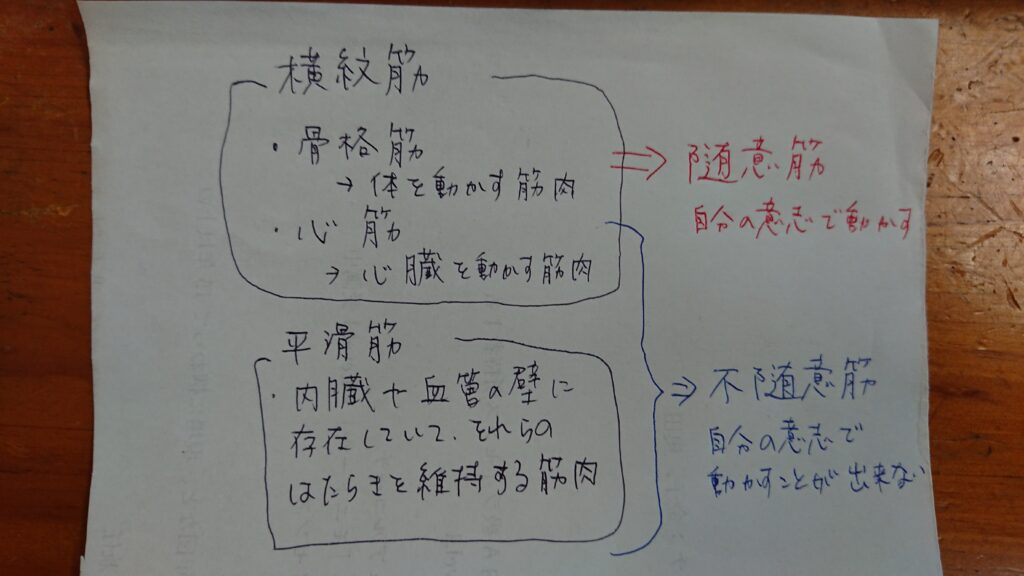 横紋筋
・骨格筋
→体を動かす筋肉
・心筋
→心臓を動かす筋肉
⇒随意筋
自分の意志で動かす
平滑筋
・内臓や血管の壁に
存在していて、それらの
はたらきを維持する筋肉
⇒不随意筋
自分の意志で
動かすことが出来ない